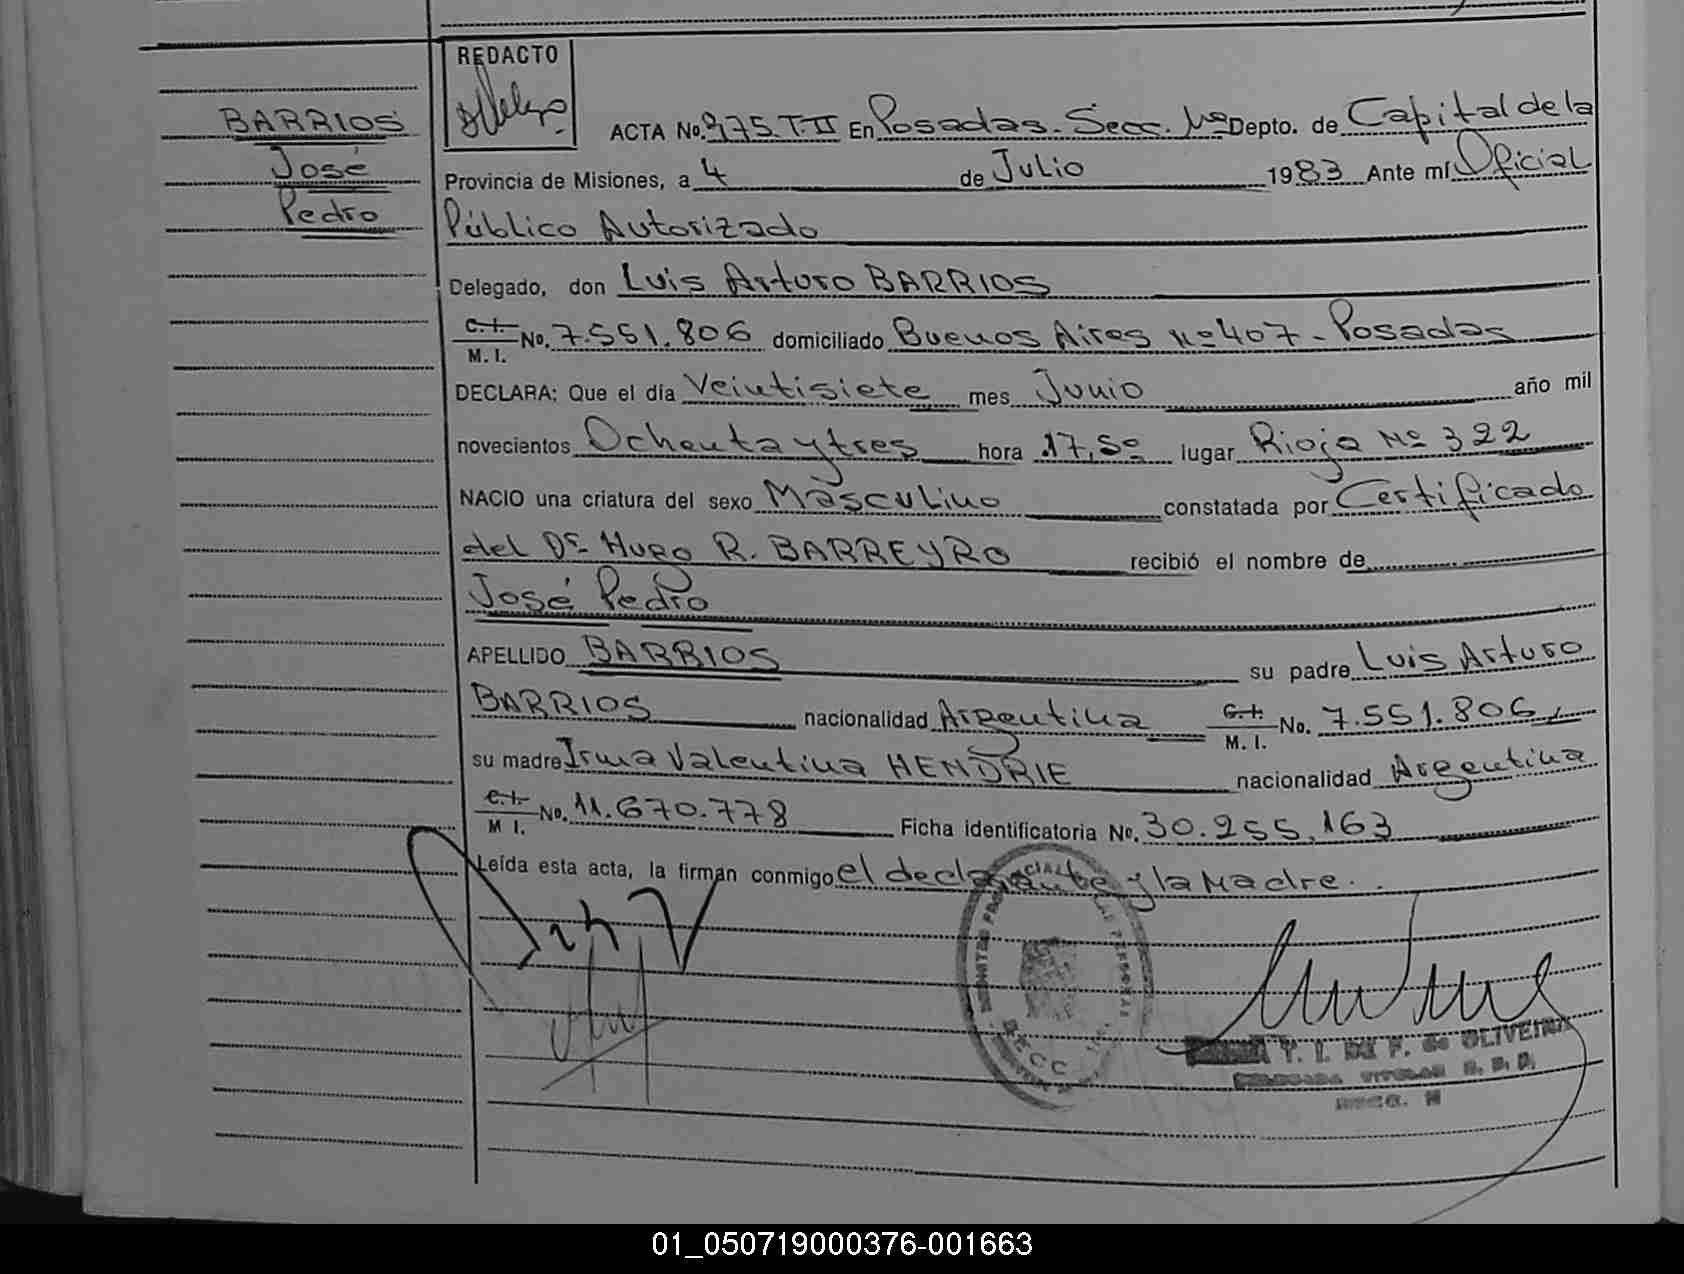 BARRIOS
José
Pedro
REDACTO
ACTA No. 975. T. II En Posadas. Secc. Nº Depto. de Capital de la
Provincia de Misiones, a 4 de Julio 1983 Ante mí Oficial
Público Autorizado
Delegado, don Luis Arturo BARRIOS
C.I. / M. I. No. 7.551.806 domiciliado Buenos Aires Nº 407 - Posadas
DECLARA: Que el día Veintisiete mes Junio año mil
novecientos Ochenta y tres hora 17,50 lugar Rioja Nº 322
NACIO una criatura del sexo Masculino constatada por Certificado
del Dr. Hugo R. BARREYRO recibió el nombre de
José Pedro
APELLIDO BARRIOS su padre Luis Arturo
BARRIOS nacionalidad Argentina C.I. / M. I. No. 7.551.806
su madre Irma Valentina HENDRIE nacionalidad Argentina
C.I. / M I. No. 11.670.778 Ficha identificatoria No. 30.255.163
Leída esta acta, la firman conmigo el declarante y la Madre.
T. I. DE F. de OLIVEIRA
DELEGADA TITULAR R. P.
SECC. N
01_050719000376-001663